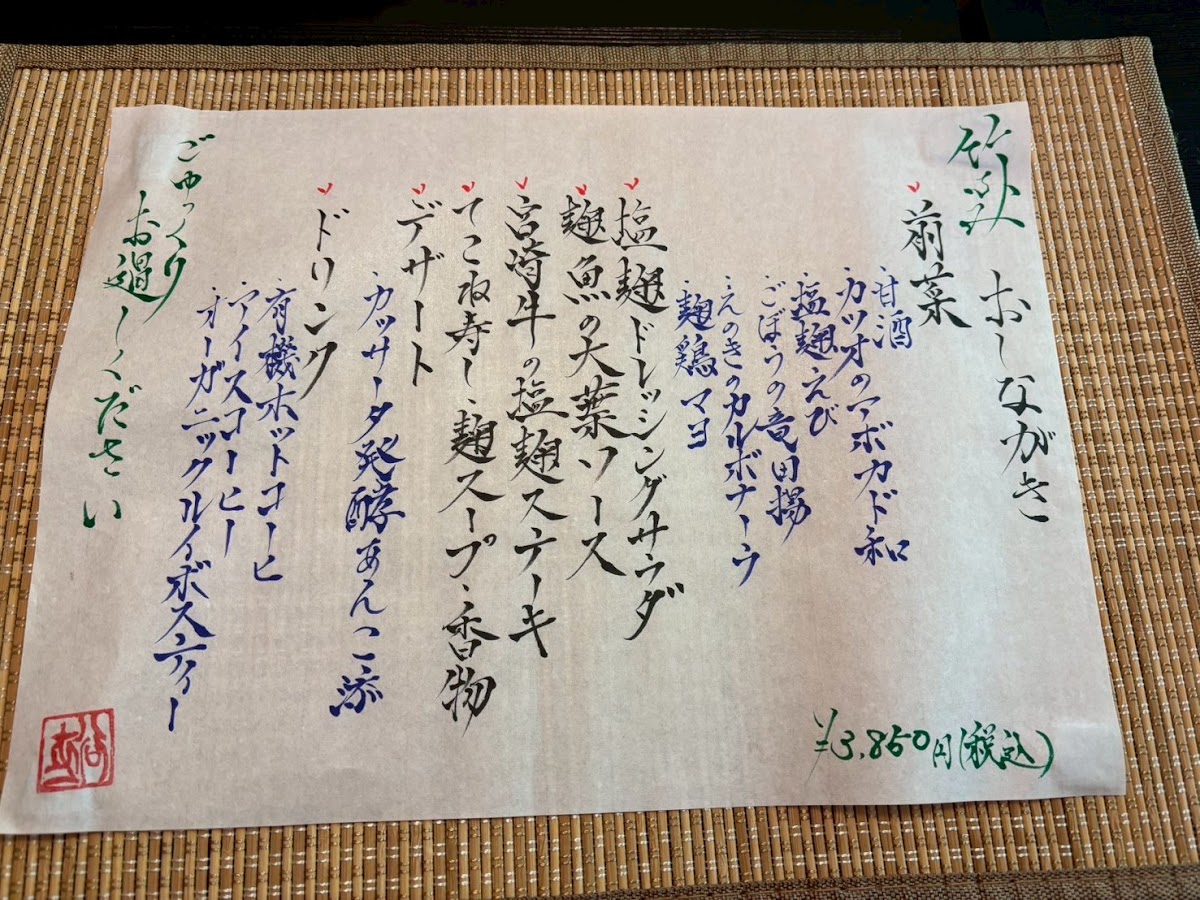 おしながき
前菜
甘酒
カツオのアボカド和
塩麹えび
ごぼうの竜田揚
えのきのカルボナーラ
麹鶏マヨ
塩麹ドレッシングサラダ
麹魚の大葉ソース
宮崎牛の塩麹ステーキ
てこね寿し、麹スープ、香物
デザート
カッサータ発酵あんこ添
ドリンク
有機ホットコーヒ
アイスコーヒー
オーガニックルイボスティー
ごゆっくり
お過しください
¥3,850円(税込)